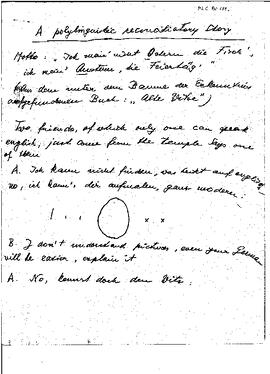 A polylinguistic reconciliatory story
Motto: "Ich mein' nicht Ostern die Fisch',
ich mein' Austern, die Feiertäg'"
dem unter dem Baume der Erkenntnis
aufgefundenen Buch: "Alte Witze")
Two friends, of which only one can speak
english, just come from the temple. Says one
of them
A. Ich kann nicht finden, was heisst auf english
no, ich kann's, dir aufmalen, ganz modern:
! . . x x
B. I don't understand pictures, even your German
will be easier, explain it
A. No, kennst doch den Witz.